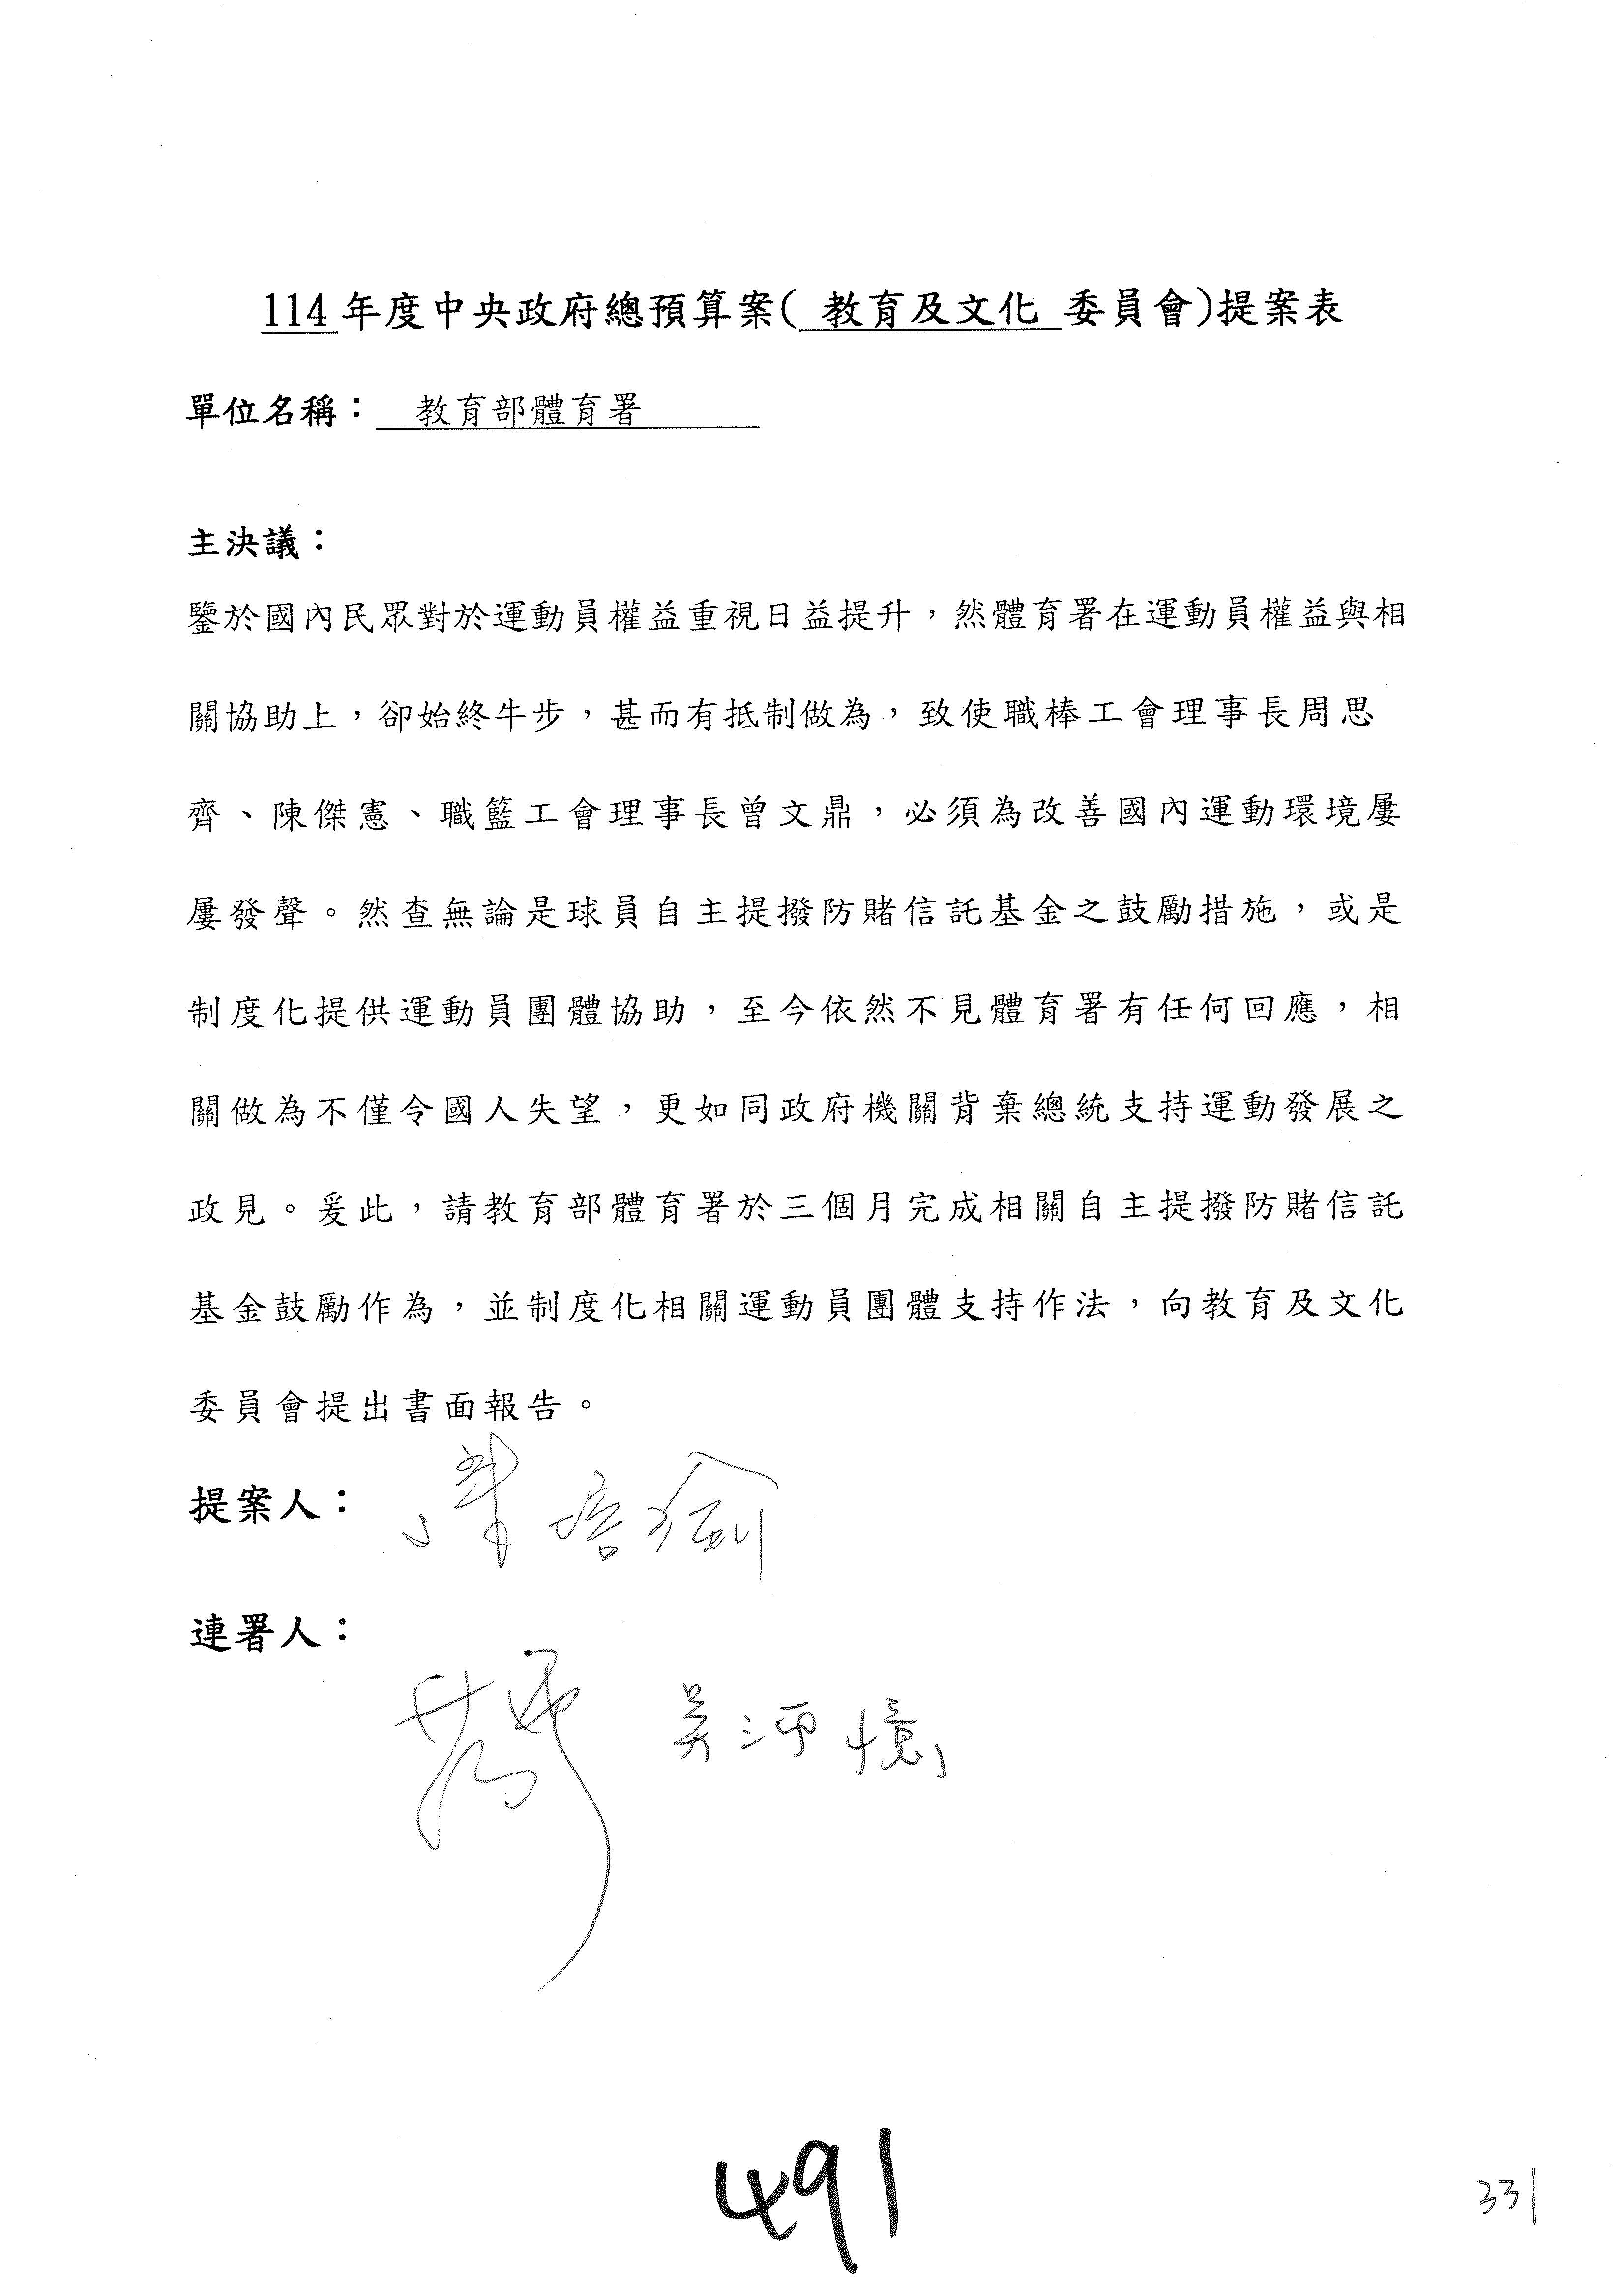 114年度中央政府總預算案( 教育及文化 委員會)提案表
單位名稱： 教育部體育署
主決議：
鑒於國內民眾對於運動員權益重視日益提升，然體育署在運動員權益與相
關協助上，卻始終牛步，甚而有抵制做為，致使職棒工會理事長周思
齊、陳傑憲、職籃工會理事長曾文鼎，必須為改善國內運動環境屢
屢發聲。然查無論是球員自主提撥防賭信託基金之鼓勵措施，或是
制度化提供運動員團體協助，至今依然不見體育署有任何回應，相
關做為不僅令國人失望，更如同政府機關背棄總統支持運動發展之
政見。爰此，請教育部體育署於三個月完成相關自主提撥防賭信託
基金鼓勵作為，並制度化相關運動員團體支持作法，向教育及文化
委員會提出書面報告。
提案人：陳培瑜
連署人：
吳沛憶
491
331